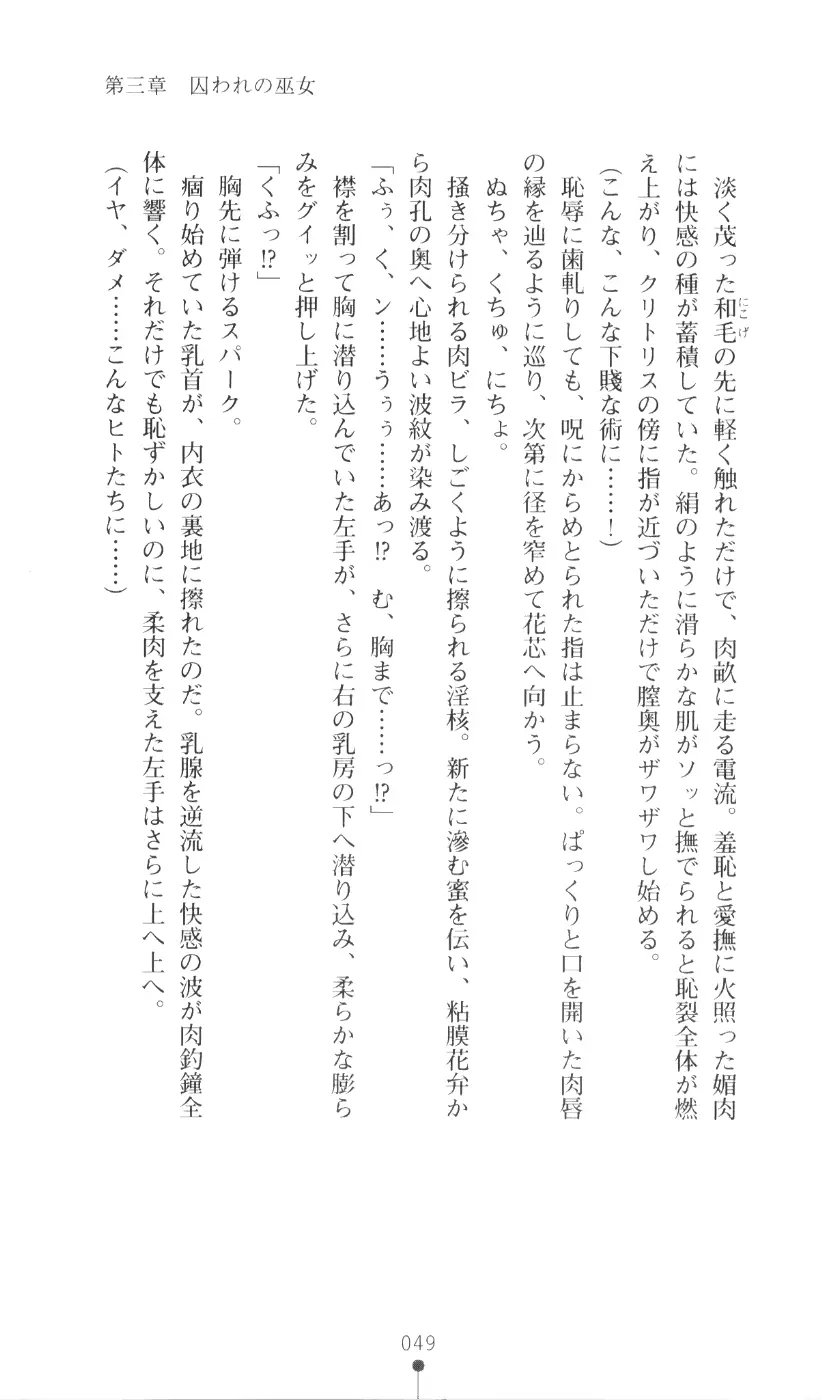 第三章　囚われの巫女
淡く茂った和毛の先に軽く触れただけで、肉畝に走る電流。羞恥と愛撫に火照った媚肉
にこげ
には快感の種が蓄積していた。絹のように滑らかな肌がソッと撫でられると恥裂全体が燃
え上がり、クリトリスの傍に指が近づいただけで膣奥がザワザワし始める。
（こんな、こんな下賤な術に……！）
恥辱に歯軋りしても、呪にからめとられた指は止まらない。ぱっくりと口を開いた肉唇
の縁を辿るように巡り、次第に径を窄めて花芯へ向かう。
ぬちゃ、くちゅ、にちょ。
掻き分けられる肉ビラ、しごくように擦られる淫核。新たに滲む蜜を伝い、粘膜花弁か
ら肉孔の奥へ心地よい波紋が染み渡る。
「ふぅ、く、ン……うぅぅ……あっ⁉　む、胸まで……っ⁉」
襟を割って胸に潜り込んでいた左手が、さらに右の乳房の下へ潜り込み、柔らかな膨ら
みをグイッと押し上げた。
「くふっ⁉」
胸先に弾けるスパーク。
痼り始めていた乳首が、内衣の裏地に擦れたのだ。乳腺を逆流した快感の波が肉釣鐘全
体に響く。それだけでも恥ずかしいのに、柔肉を支えた左手はさらに上へ上へ。
（イヤ、ダメ……こんなヒトたちに……）
049